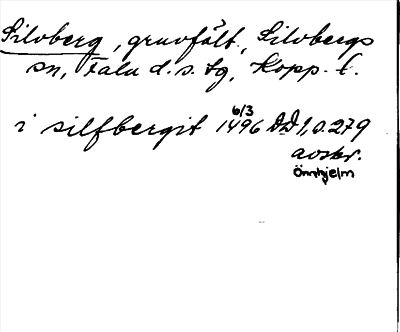 Silvberg, gruvfält, Silvbergs
sn, Falu d. s. tg, Kopp. l.
i silfbergit 6/3 1496 DD 1, s. 279
avskr.
Örnhjelm